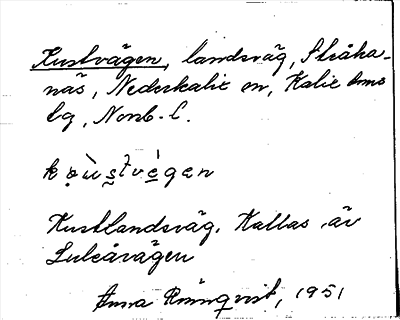 Kustvägen, landsväg, Stråka-
näs, Nederkalix sn, Kalix tings
lg, Norrb. l.
kɷ̀u̇s̨tvę́gen
Kustlandsväg. Kallas äv
Luleåvägen
Anna Rönnqvist, 1951